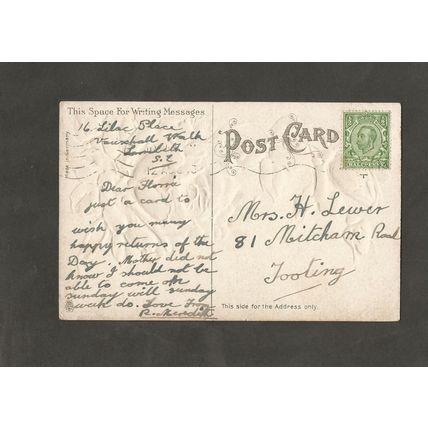 This Space For Writing Messages
16. Lilac Place
Vauxhall Walk
Lambeth
S.E
Dear Florrie
just a card to
wish you many
happy returns of the
Day. Mother did not
know I should not be
able to come on
sunday will sunday
week do. Love From
R. Meredith
Made in Germany
POST CARD
Mrs. H. Lewer
81 Mitcham Road
Tooting
This side for the Address only.